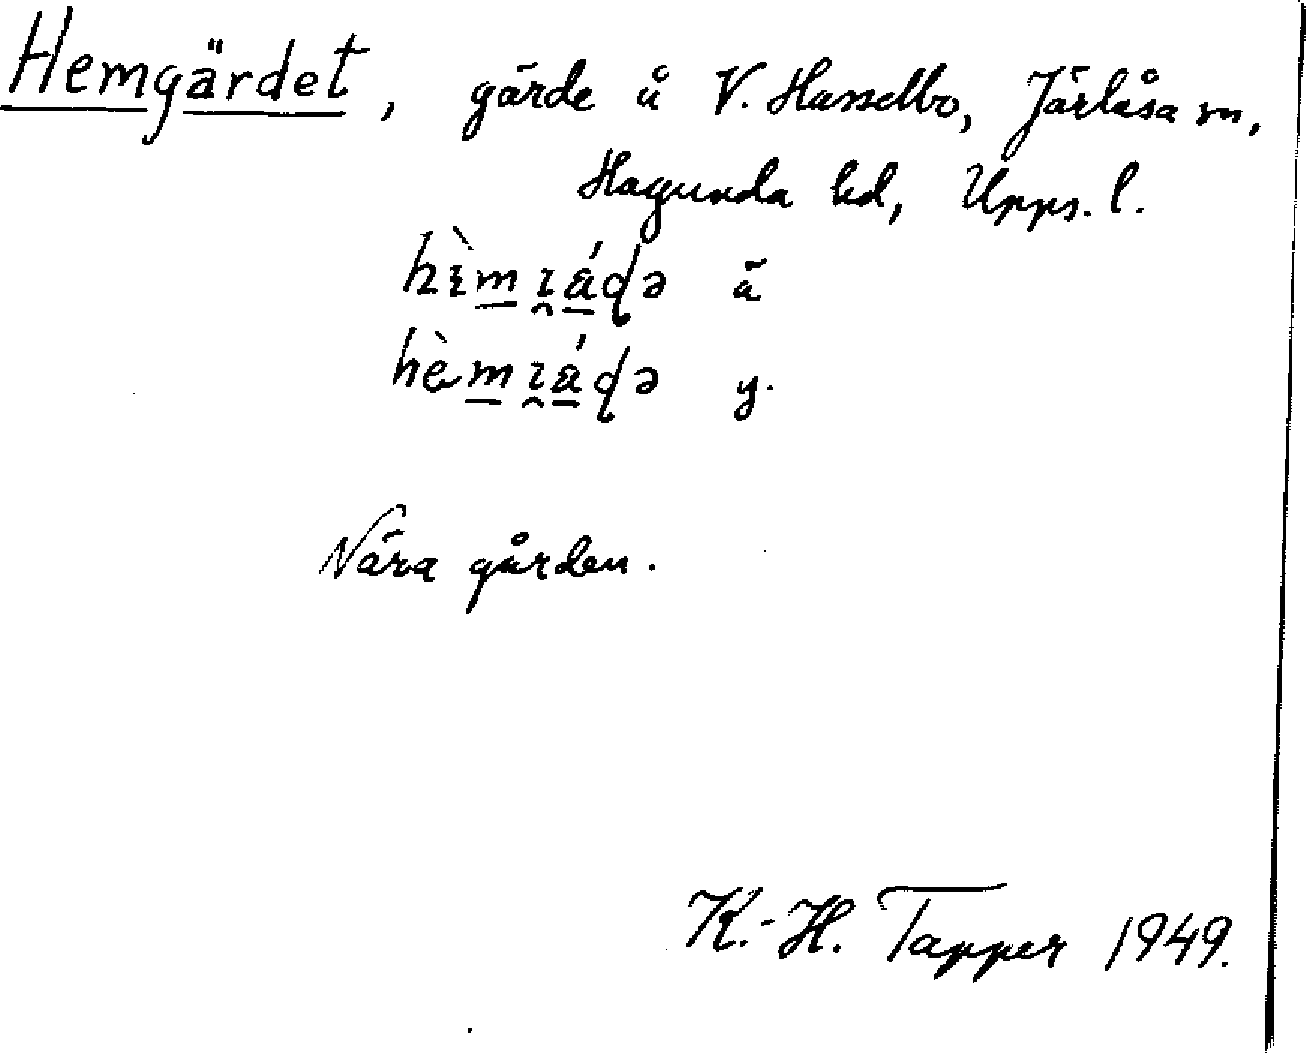 Hemgärdet, gärde å V. Hasselbo, Järlåsa sn,
Hagunda hd, Upps. l.
ä
y.
Nära gården.
K.-H. Tapper 1949.